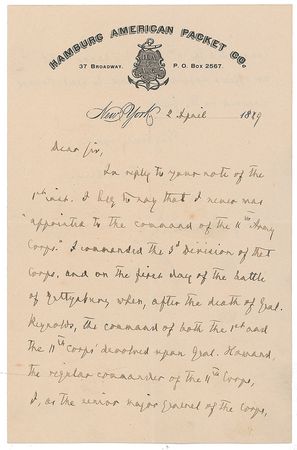 HAMBURG AMERICAN PACKET CO.
37 BROADWAY. P. O. BOX 2567.
New York, 2 April 1889
Dear Sir,
In reply to your note of the
1st inst. I beg to say that I never was
"appointed to the command of the 11th Army
Corps." I commanded the 3d Division of that
Corps, and on the first day of the battle
of Gettysburg when, after the death of Genl.
Reynolds, the command of both the 1st and
the 11th Corps devolved upon Genl. Howard,
the regular commander of the 11th Corps,
I, as the senior major General of the Corps,